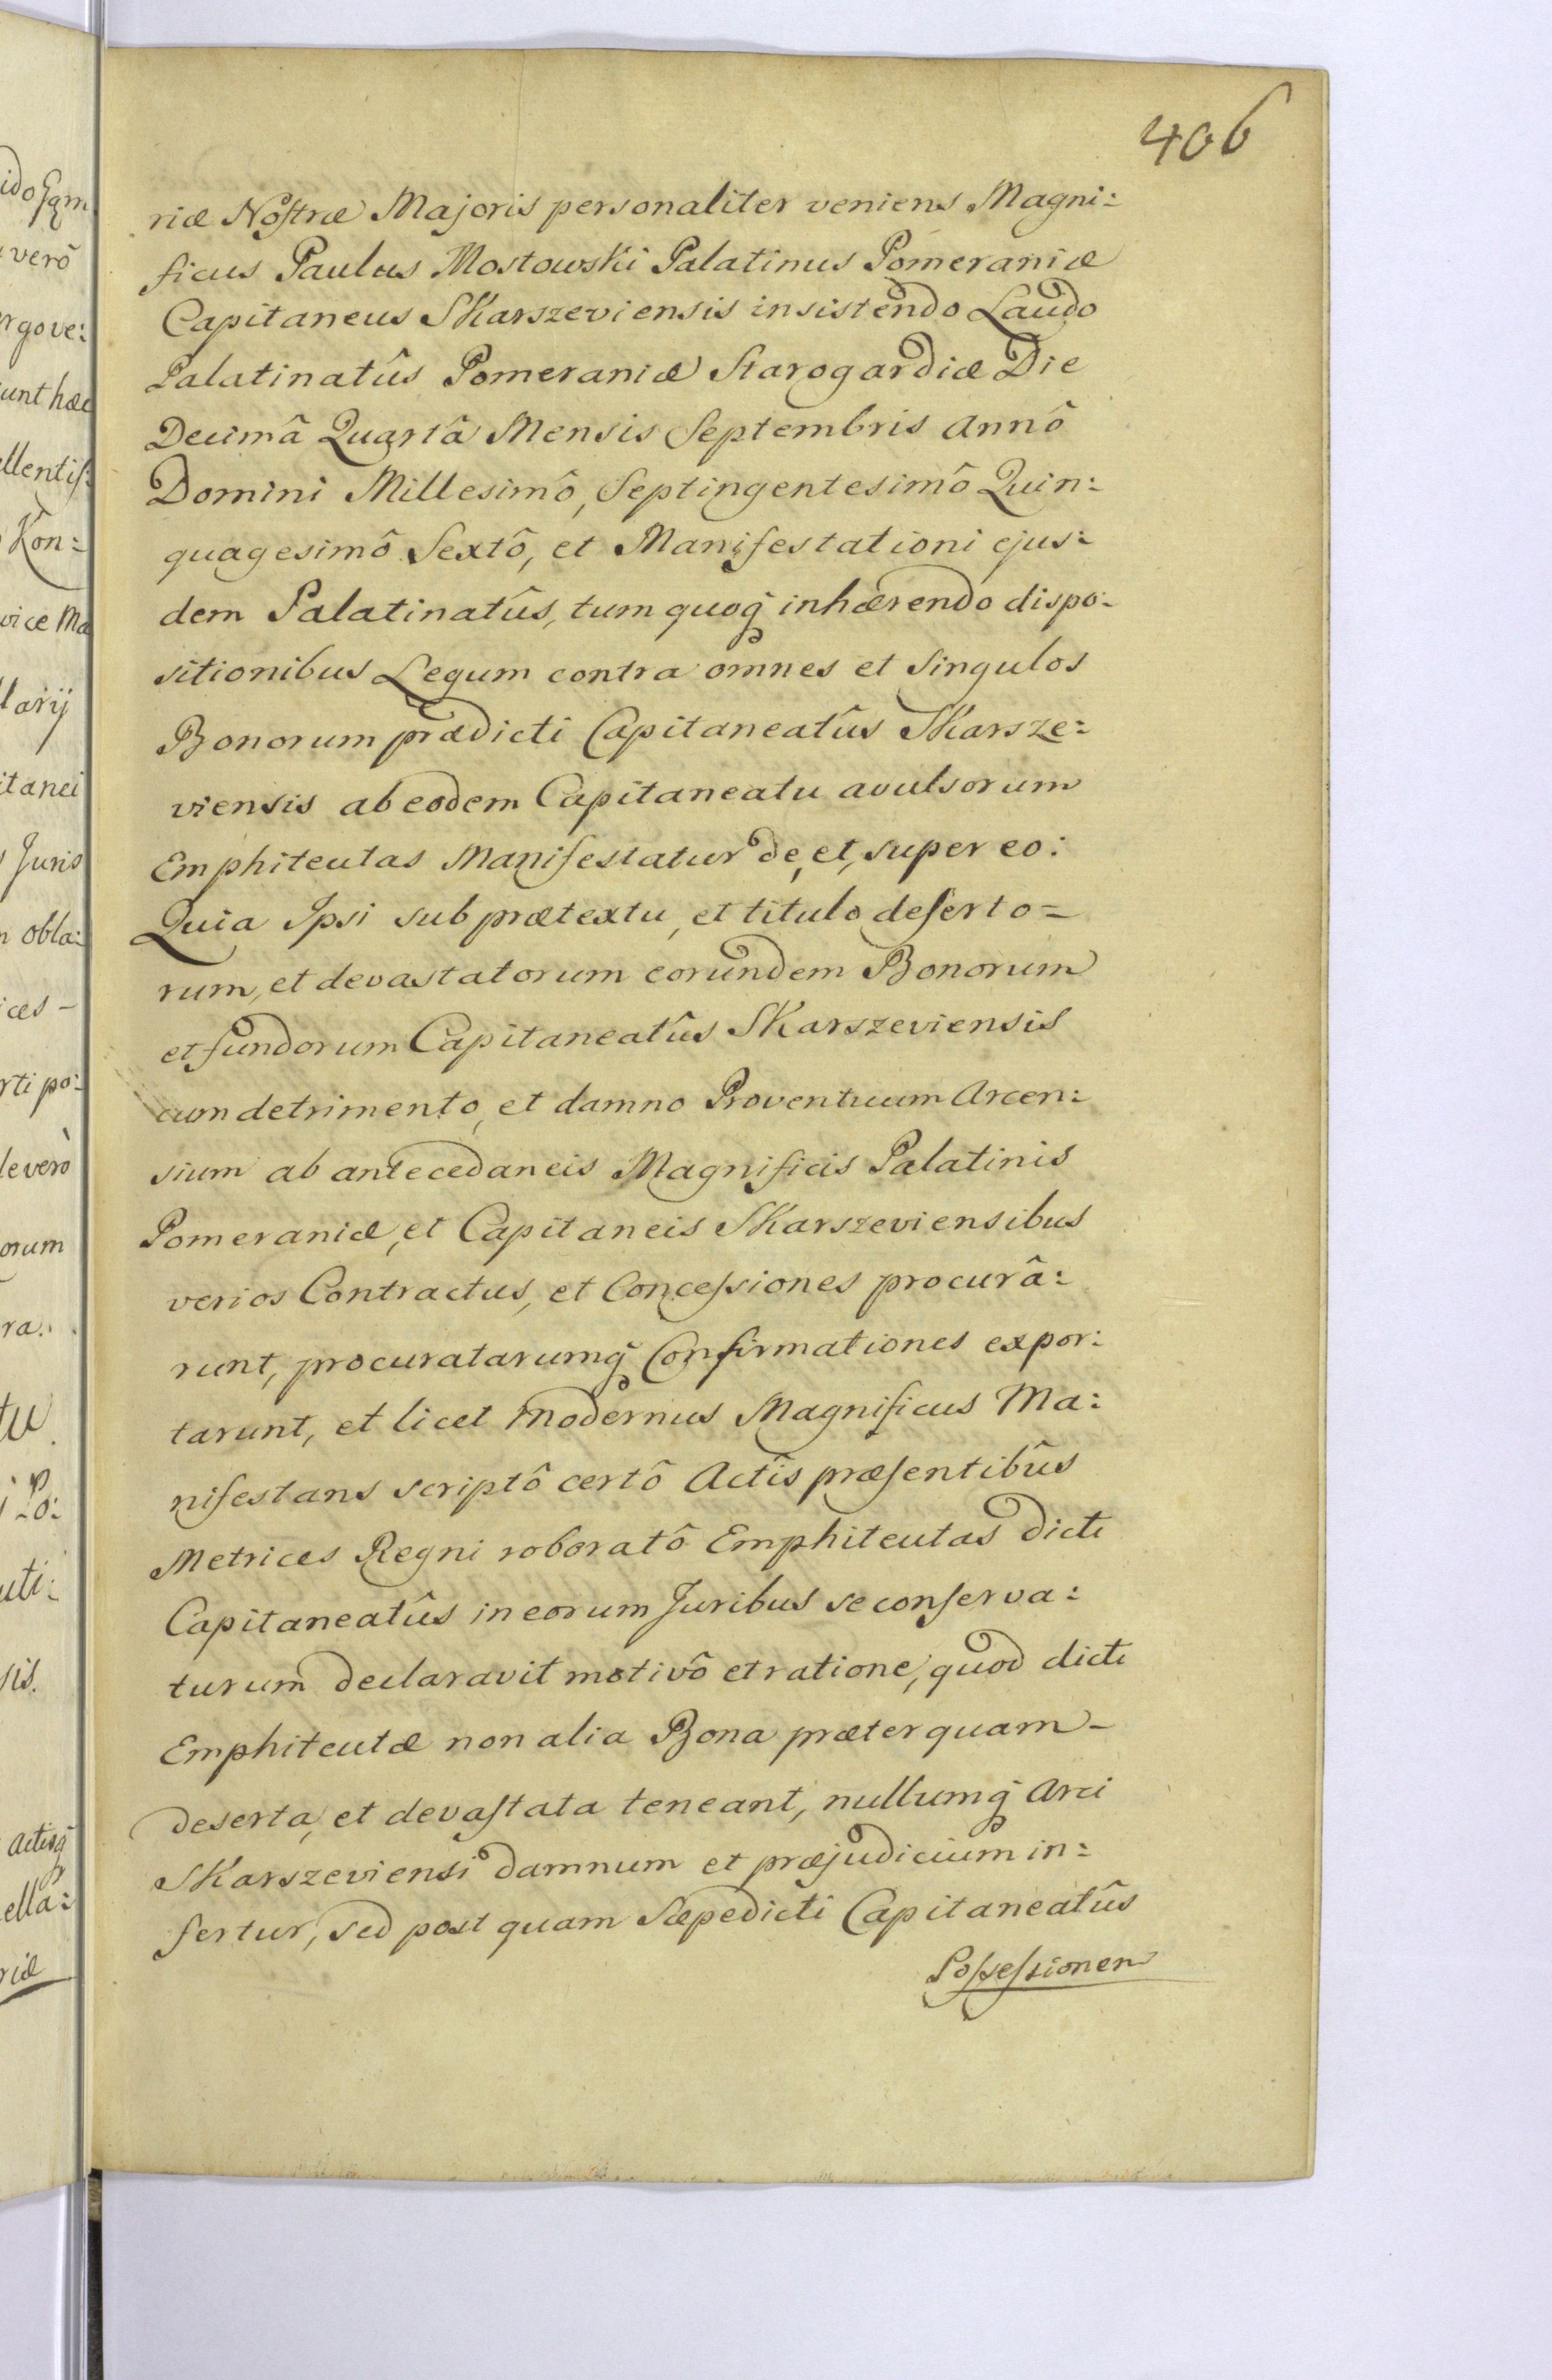 406
riæ Nostræ Majoris personaliter veniens Magni:
ficus Paulus Mostowski Palatinus Pomeraniæ
Capitaneus Skarszeviensis insistendo Laudo
Palatinatûs Pomeraniæ Starogardiæ Die
Decimâ Quartâ Mensis Septembris Annô
Domini Millesimô, Septingentesimô Quin:
quagesimô Sextô, et Manifestationi ejus:
dem Palatinatûs, tum quoq̃ inhærendo dispo:
sitionibus Legum contra omnes et Singulos
Bonorum prædicti Capitaneatûs Skarsze:
viensis ab eodem Capitaneatu avulsorum
Emphiteutas Manifestatur de, et, super eo:
Quia Ipsi sub prætextu, et titulo deserto=
rum, et devastatorum eorundem Bonorum
et fundorum Capitaneatûs Skarszeviensis
cum detrimento, et damno Proventuum Arcen:
sium ab antecedaneis Magnificis Palatinis
Pomeraniæ, et Capitaneis Skarszeviensibus
verios Contractus, et Concessiones procurâ:
runt, procuratarumq̃ Confirmationes expor:
tarunt, et licet modernus Magnificus Ma:
nifestans scriptô certô Actis præsentibûs
Metrices Regni roboratô Emphiteutas dicti
Capitaneatûs in eorum Juribus se conserva:
turum declaravit motivô et ratione, quod dicti
Emphiteutæ non alia Bona præterquam-
deserta, et devastata teneant, nullumq̃ Arci
Skarszeviensi damnum et præjudicium in:
fertur, sed post quam Sæpedicti Capitaneatûs
Possessionem
verô
unt hæc
Kon:
vice Ma
larij
itanei
Juris
obla:
ices -
rti po:
le verò
orum
ra.
tu
uti:
sis.
Actisq̃
ella:
riæ